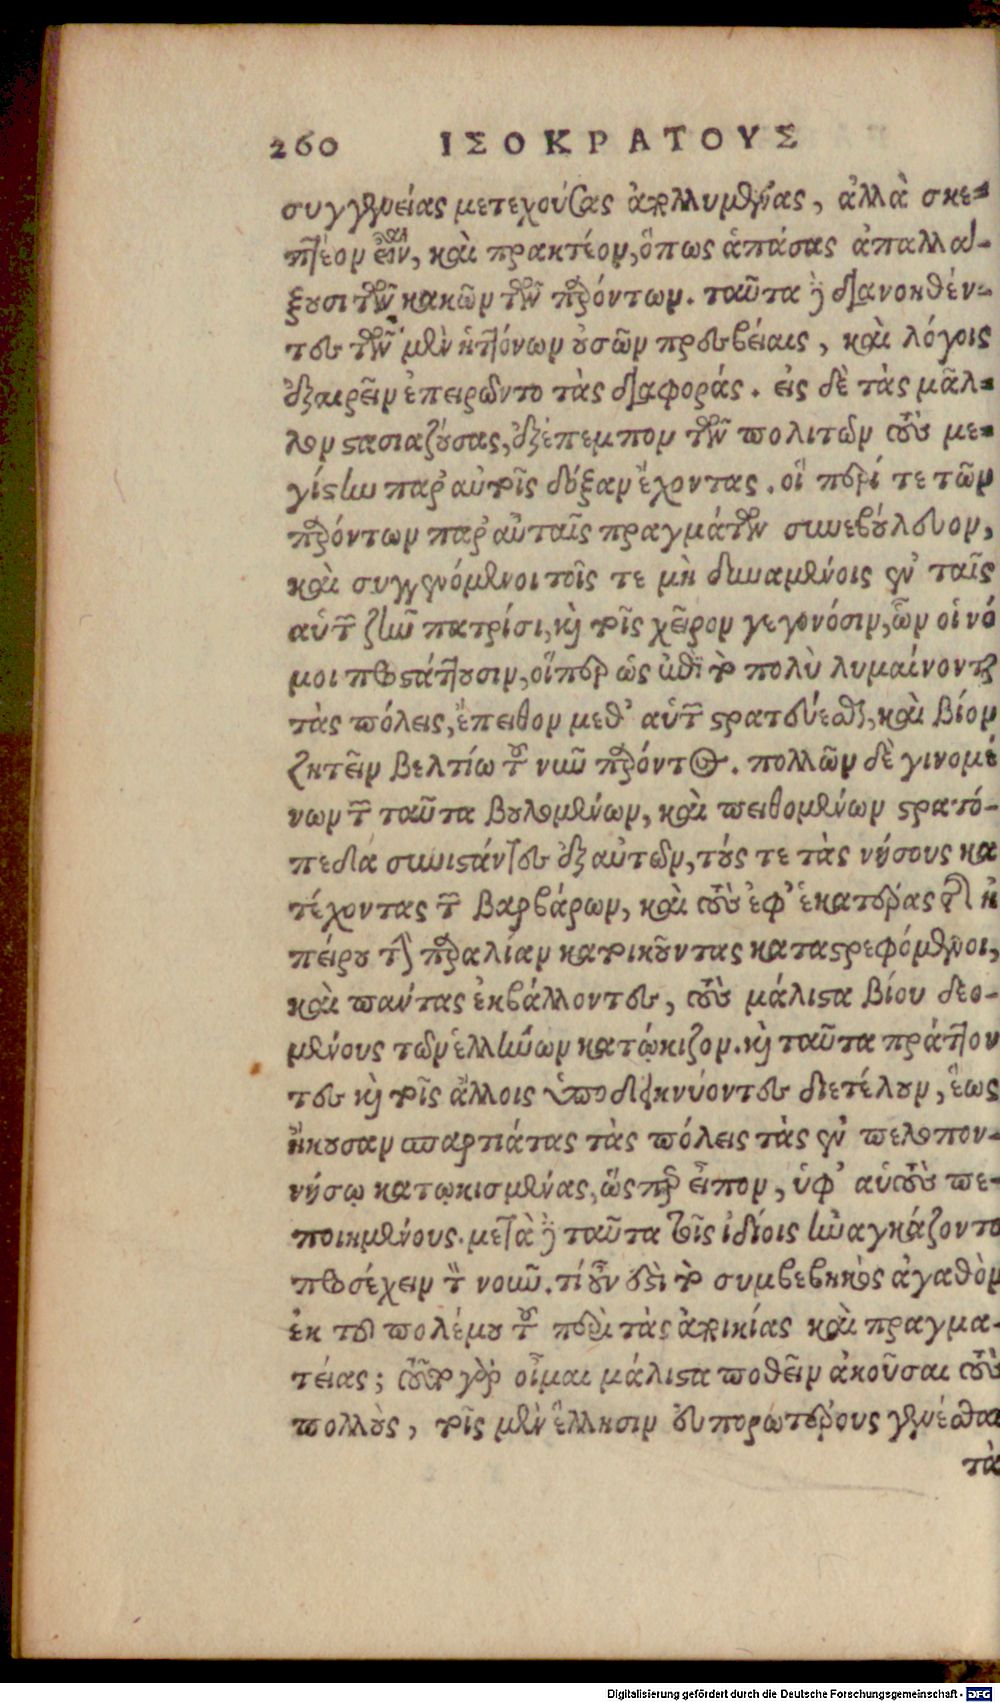 260 ΙΣΟΚΡΑΤΟΥΣ
συγγενείας μετεχούσας ἀπολλυμένας, ἀλλὰ σκε-
πτέον εἶναι, καὶ πρακτέον, ὅπως ἁπάσας ἀπαλλά-
ξουσι τῶν κακῶν τῶν παρόντων. ταῦτα δὲ διανοηθέν-
τες τῶν μὲν ἡττόνων οὐσῶν πρεσβείαις, καὶ λόγοις
ἐξαιρεῖν ἐπειρῶντο τὰς διαφοράς. εἰς δὲ τὰς μᾶλ-
λον στασιαζούσας, ἐξέπεμπον τῶν πολιτῶν τοὺς με-
γίστην παρ' αὐτοῖς δόξαν ἔχοντας. οἳ περί τε τῶν
παρόντων παρ' αὐταῖς πραγμάτων συνεβούλευον,
καὶ συγγενόμενοι τοῖς τε μὴ δυναμένοις ἐν ταῖς
αὑτῶν ζῆν πατρίσι, καὶ τοῖς χεῖρον γεγονόσιν, ὧν οἱ νό
μοι προστάττουσιν, οἵπερ ὡς ἐπὶ τὸ πολὺ λυμαίνονται
τὰς πόλεις, ἔπειθον μεθ' αὑτῶν στρατεύεσθαι, καὶ βίον
ζητεῖν βελτίω τοῦ νῦν παρόντος. πολλῶν δὲ γινομέ
νων τῶν ταῦτα βουλομένων, καὶ πειθομένων στρατό-
πεδα συνιστάντες ἐξ αὐτῶν, τούς τε τὰς νήσους κα
τέχοντας τῶν βαρβάρων, καὶ τοὺς ἐφ' ἑκατέρας τῆς ἠ
πείρου τὴν παραλίαν κατοικοῦντας καταστρεφόμενοι,
καὶ πάντας ἐκβάλλοντες, τοὺς μάλιστα βίου δεο-
μένους τῶν ἑλλήνων κατῴκιζον. καὶ ταῦτα πράττον
τες καὶ τοῖς ἄλλοις ὑποδεικνύοντες διετέλουν, ἕως
ἤκουσαν σπαρτιάτας τὰς πόλεις τὰς ἐν πελοπον-
νήσῳ κατῳκισμένας, ὥσπερ εἶπον, ὑφ' αὑτοὺς πε-
ποιημένους. μετὰ δὲ ταῦτα τοῖς ἰδίοις ἠναγκάζοντο
προσέχειν τὸν νοῦν. τί οὖν ἐστὶ τὸ συμβεβηκὸς ἀγαθὸν
ἐκ τοῦ πολέμου τοῦ περὶ τὰς ἀποικίας καὶ πραγμα-
τείας; τοῦτο γὰρ οἶμαι μάλιστα ποθεῖν ἀκοῦσαι τοὺς
πολλοὺς, τοῖς μὲν ἕλλησιν εὐπορωτέρους γενέσθαι
τὰ
Digitalisierung gefördert durch die Deutsche Forschungsgemeinschaft - DFG